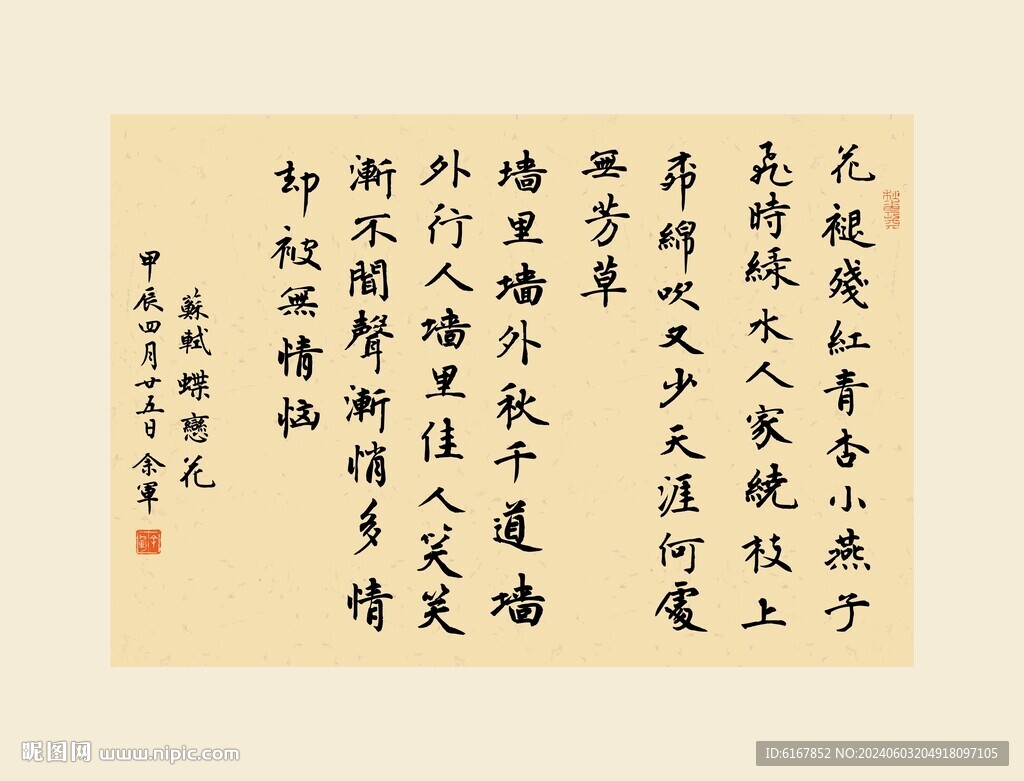 花褪殘紅青杏小燕子
飛時緑水人家繞枝上
柳綿吹又少天涯何處
無芳草
墙里墙外秋千道墙
外行人墙里佳人笑笑
漸不聞聲漸悄多情
却被無情恼
蘇軾蝶戀花
甲辰四月廿五日余軍
昵图网 www.nipic.com
ID:6167852 NO:20240603204918097105